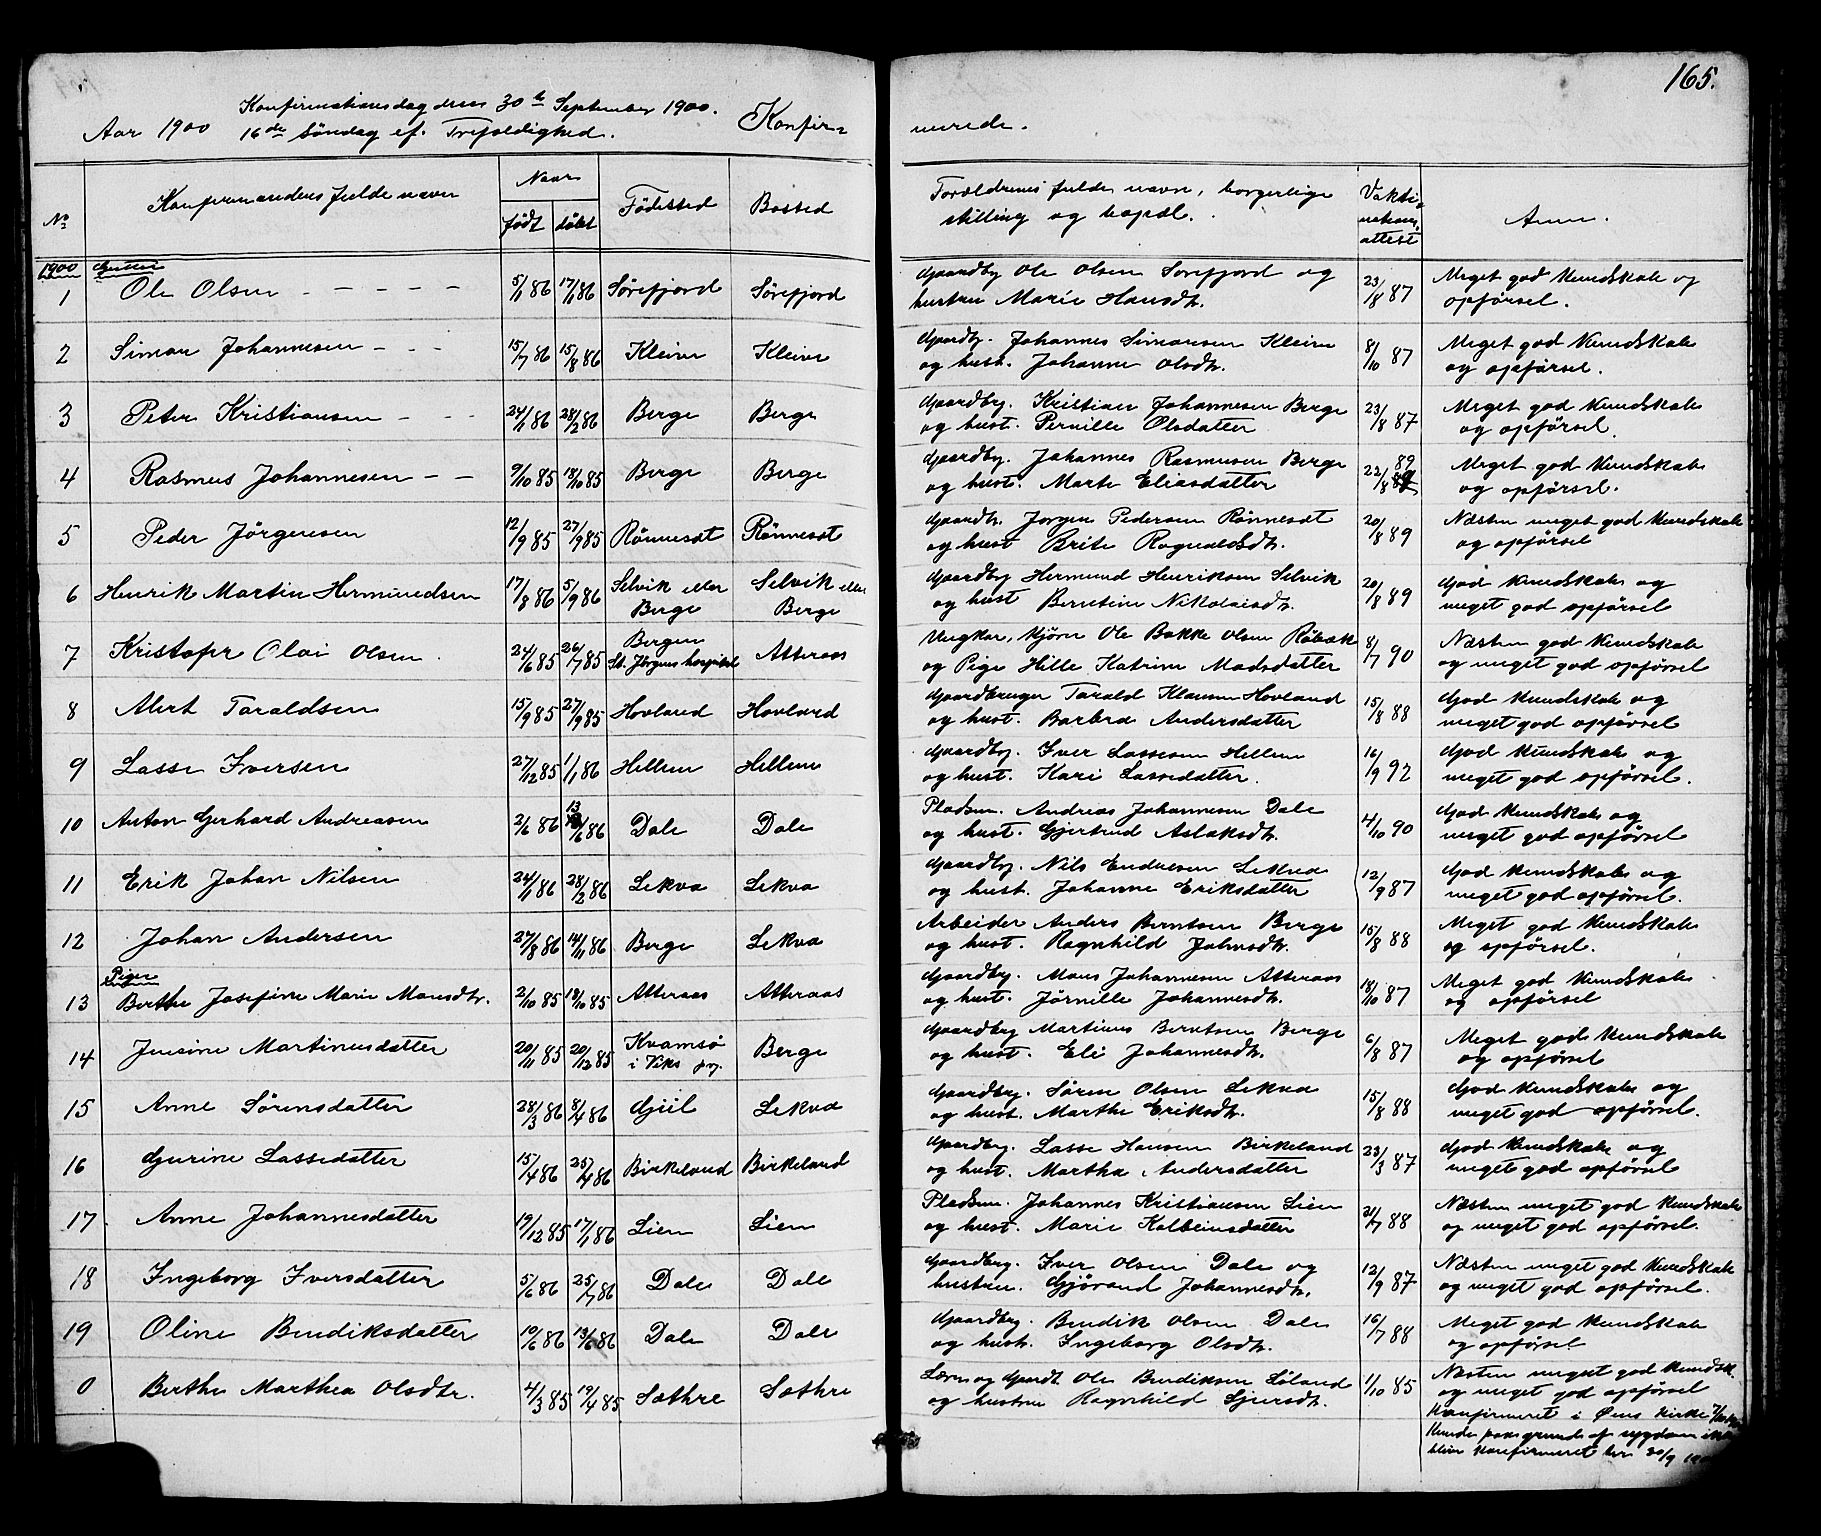 165.
Konfirmationsdag den 30te September 1900.
Aar 1900 16de Søndag ef. Trefoldighed. Konfir= merede.
No Konfirmandens fulde navn Naar født døbt Fødested Bosted Forældrenes fulde navn, borgerlige stilling og bopæl. Vakti-nations-attest Anm.
1900 Gutter
1 Ole Olsen - - - - - 5/1 86 17/1 86 Sørefjord Sørefjord Gaardbr Ole Olsen Sørefjord og 23/8 87 Meget god Kundskab og
hustru Marie Hansdtr. opførsel.
2 Simon Johannesen - - - 15/7 86 15/8 86 Kleive Kleive Gaardbr. Johannes Simonsen Kleive 8/10 87 Meget god Kundskab
og hust. Johanne Olsdtr. og opførsel.
3 Peter Kristiansen - - - 24/1 86 28/2 86 Berge Berge Gaardbr. Kristian Johannesen Berge 23/8 87 Meget god Kundskab
og hust. Pernille Olsdatter og opførsel.
4 Rasmus Johannesen - - 9/10 85 18/10 85 Berge Berge Gaardbr. Johannes Rasmusen Berge 22/8 89 Meget god Kundskab
og hust. Marte Eliasdatter og opførsel.
5 Peder Jørgensen 12/9 85 27/9 85 Rønneset Rønneset Gaardbr. Jørgen Pedersen Rønneset 20/8 89 Næsten meget god Kundskab
og hust Brite Rognaldsdtr. og opførsel
6 Henrik Martin Hermundsen 17/8 86 5/9 86 Selvik eller Selvik eller Gaardbr Hermund Henriksen Selvik 20/8 89 God Kundskab og
Berge Berge og hust Berntine Nikolaisdtr. meget god opførsel
7 Kristofer Olai Olsen. 24/6 85 26/7 85 Bergen Atteraas Ungkar, Kjører Ole Bakke Olsen Røbæk 8/7 90 Næsten god Kundskab
St. Jørgens hospital og Pige Hille Katrine Madsdatter og meget god opførsel
8 Alert Taraldsen 15/9 85 27/9 85 Hovland Hovland Gaardbruger Tarald Klausen Hovland 15/8 88 God Kundskab og
og hust. Barbra Andersdatter meget god opførsel
9 Lasse Iversen 27/12 85 1/1 86 Hellem Hellem Gaardbr. Iver Lassesen Hellem 16/9 92 God Kundskab og
og hust. Kari Lassedatter. meget god opførsel.
10 Anton Gerhard Andreasen 2/6 86 13/6 86 Dale Dale Pladsm. Andreas Johannesen Dale 4/10 90 God Kundskab og
og hust. Gjertrud Aslaksdtr. meget god opførsel
11 Erik Johan Nilsen 24/1 86 28/2 86 Lekva Lekva Gaardbr. Nils Endresen Lekva 12/9 87 God Kundskab og
og hust. Johanne Eriksdatter meget god opførsel.
12 Johan Andersen 27/8 86 14/11 86 Berge Lekva Arbeider Anders Berntsen Berge 15/8 88 Meget god Kundskab
og hust. Ragnhild Johnsdtr. og opførsel.
Piger
13 Berthe Josefine Marie Monsdtr. 2/10 85 18/10 85 Atteraas Atteraas Gaardbr. Mons Johannesen Atteraas 18/10 87 Meget god Kundskab
og hust. Jørnille Johannesdtr. og opførsel
14 Jensine Martinusdatter 20/11 85 20/12 85 Kvamsø Berge Gaardbrg Martinus Berntsen Berge 6/8 87 Meget god Kundskab
i Viks pr. og hust. Eli Johannesdtr. og opførsel
15 Anne Sørensdatter 28/3 86 8/4 86 Gjiil Lekva Gaardbr. Søren Olsen Lekva 15/8 88 God Kundskab og
og hust. Marthe Eriksdtr. meget god opførsel.
16 Gurine Lassedatter 15/4 86 25/4 86 Birkeland Birkeland Gaardbr. Lasse Hansen Birkeland 23/3 87 God Kundskab og
og hust. Martha Andersdatter meget god opførsel
17. Anne Johannesdatter 19/12 85 17/1 86 Lien Lien Pladsm. Johannes Kristiansen Lien 21/7 88 Næsten meget god Kundskab
og hust. Marie Kolbeinsdatter og meget god opførsel.
18 Ingeborg Iversdatter 5/6 86 25/7 86 Dale Dale Gaardbrg. Iver Olsen Dale og 12/9 87 Næsten meget god Kundskab
hustru. Gjørand Johannesdtr. og meget god opførsel.
19 Oline Bendiksdatter 10/6 86 13/6 86 Dale Dale Gaardbr. Bendik Olsen Dale 16/7 88 Meget god Kundskab
og hust. Ingeborg Olsdtr. og opførsel
0 Berthe Marthea Olsdtr. 4/3 85 19/4 85 Sæthre Sæthre Lærer og Gaardbr. Ole Bendiksen Løland 1/10 85 Næsten meget god Kundsk.
og hustru Ragnhild Sjursdtr. og meget god opførsel
Konfirmeret i Øens Kirke
Kunde paa grund af sygdom ikke
blive konfirmeret her 30/9